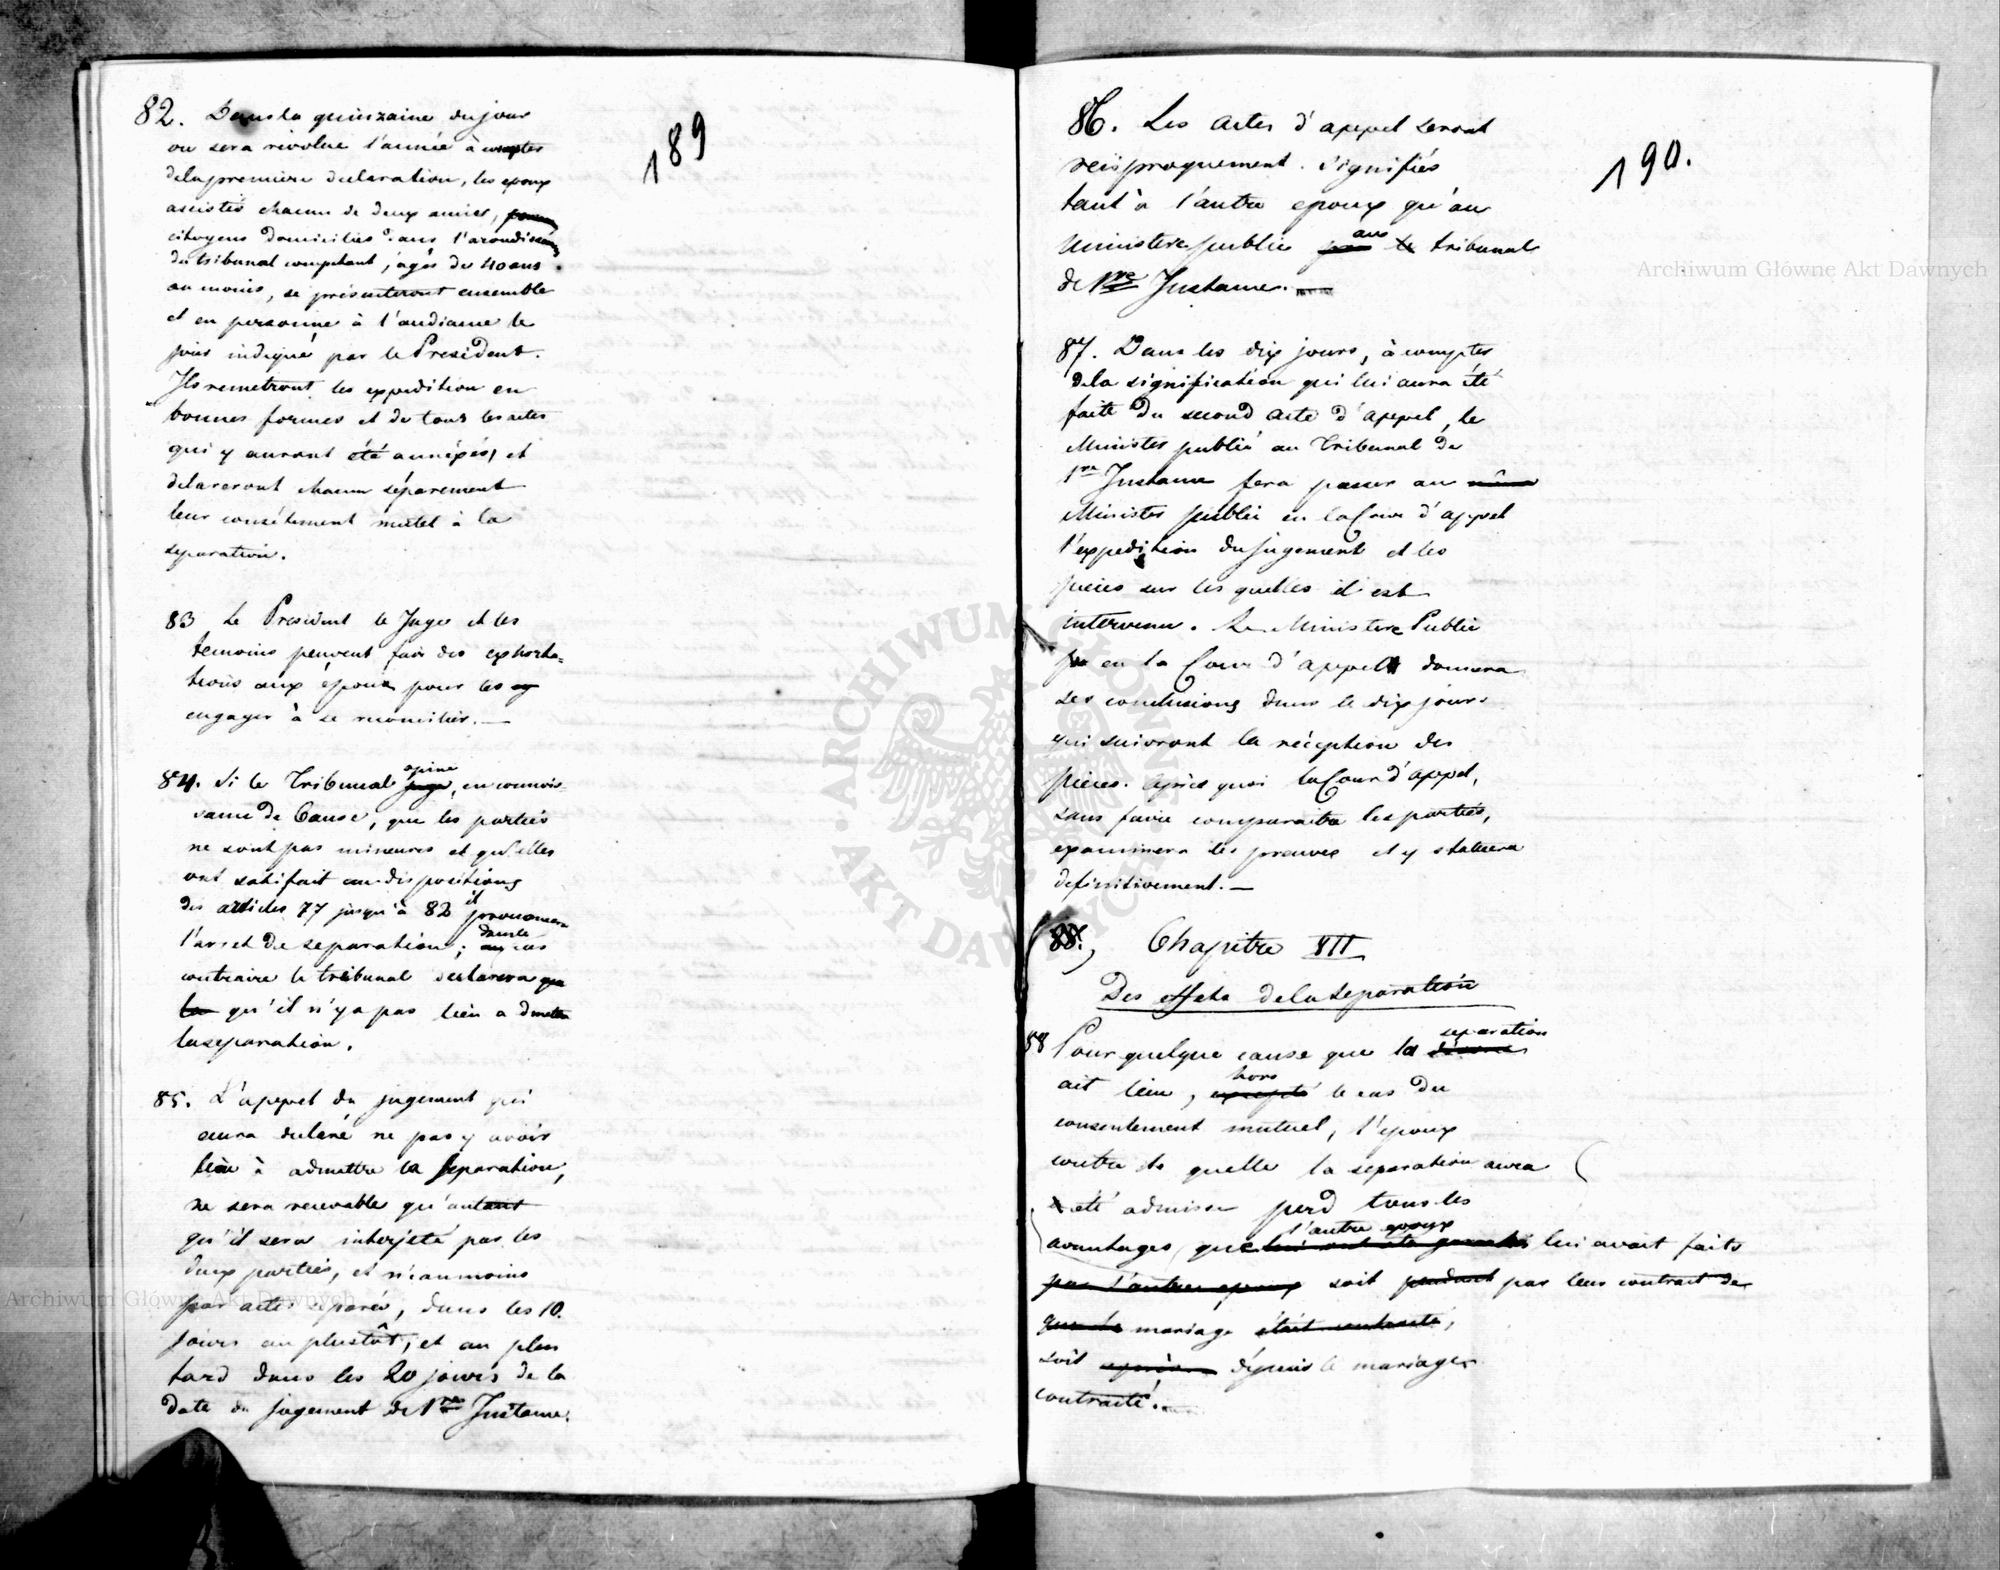 189
82. Dans la quinzaine du jour
ou sera révolue l'année à compter
dela première declaration, les epoux
assistés chacun de deux amies,
citoyens domiciliés dans l'arondissem
du tribunal competant, agés de 40 ans
au moins, se présenteront ensemble
et en personne à l'audiance le
jour indiqué par le President.
Ils remetront les expedition en
bonnes formes et de tous les actes
qui y auront été annéxés, et
delareront chacun séparement
leur consétement mutel à la
separation.
83 Le President le Juge et les
temoins peuvent fair des exhorta=
tions aux époux pour les
engager à se reconcilier. —
84. Si le Tribunal opine, en connois
sance de Cause, que les parties
ne sont pas mineures et qu'elles
ont satisfait au dispositions
des articles 77 jusqu'à 82 il prononcera
l'arret de separation; dans le cas
contraire le tribunal declarera que
la qu'il n'y a pas lieu a dmettre
la separation.
85. L'appel du jugement qui
aura declaré ne pas y avoir
lieu à admettre la separation,
ne sera recevable qu'autant
qu'il sera interjeté par les
deux parties, et n'eaumoins
par actes separés, dans les 10.
jours au plustôt, et au plus
tard dans les 20 jours de la
date du jugement de 1re Instance.
190.
86. Les actes d'appel seront
reciproquement signifiés
tant à l'autre epoux qu'au
Ministere public au le tribunal
de 1re Instance. —
87. Dans les dix jours, à compter
dela signification qui lui aura été
faite du second acte d'appel, le
Minister public au Tribunal de
1re Instance fera passer au même
Minister public en la Cour d'appel
l'expedition du jugement et les
pieces sur les quelles il est
intervenu. Le Ministere Public
en la Cour d'appel donnera
ses conclusions dans le dix jours
qui suivront la réception des
pieces. Après quoi la Cour d'appel,
sans faire comparaitre les parties,
examinera les preuves et y statuera
definitivement. —
88. Chapitre VII
Des effets dela Separation
88 Pour quelque cause que la separation
ait lieu, hors le cas du
consentement mutuel, l'epoux
contre la quelle la separation aura
été admise perd tous les
avantages que l'autre epoux lui avait faits
par l'autre epoux soit pendant par leur contrat de
mariage était contracté,
soit après depuis le mariage
contracté.
Archiwum Główne Akt Dawnych
Archiwum Główne Akt Dawnych
ARCHIWUM GŁÓWNE AKT DAWNYCH